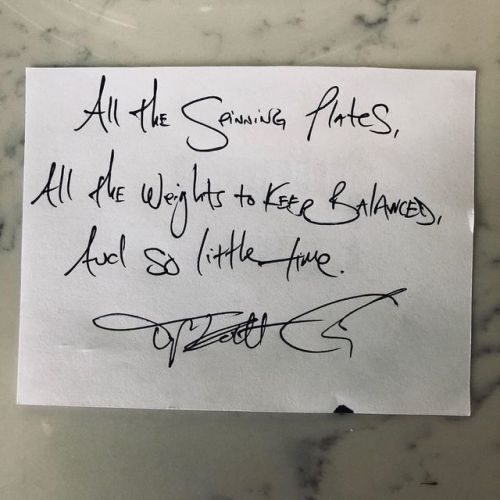 All the Spinning Plates,
All the Weights to Keep Balanced,
And so little time.